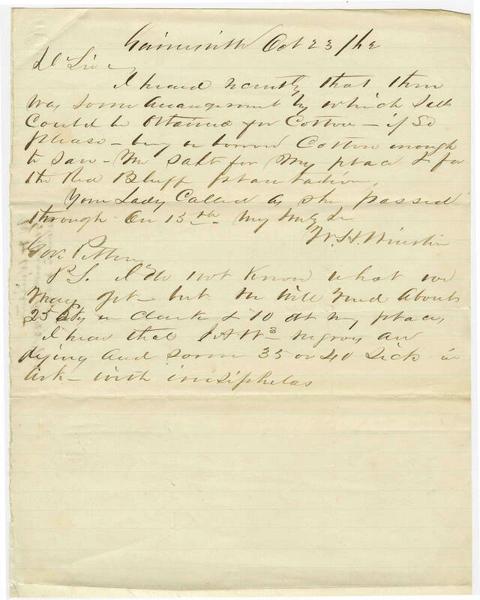 Gainesville Oct 23/62
Dr Sir
I heard recently that there
was some arrangement by which Salt
could be obtained for Cotton – if so
please – buy or borrow Cotton enough
to save – me salt for my place & for
the Red Bluff plantation,
Your Lady Called as she passed
through on 13th. My
W. H. Winston
Gov. Pettus
P.S. I do not know what we
may get – but we will need about
25 in & 10 at my place,
I hear that J A Ws negroes are
dying and some 35 or 40 Sick in
– with irrisiphelas